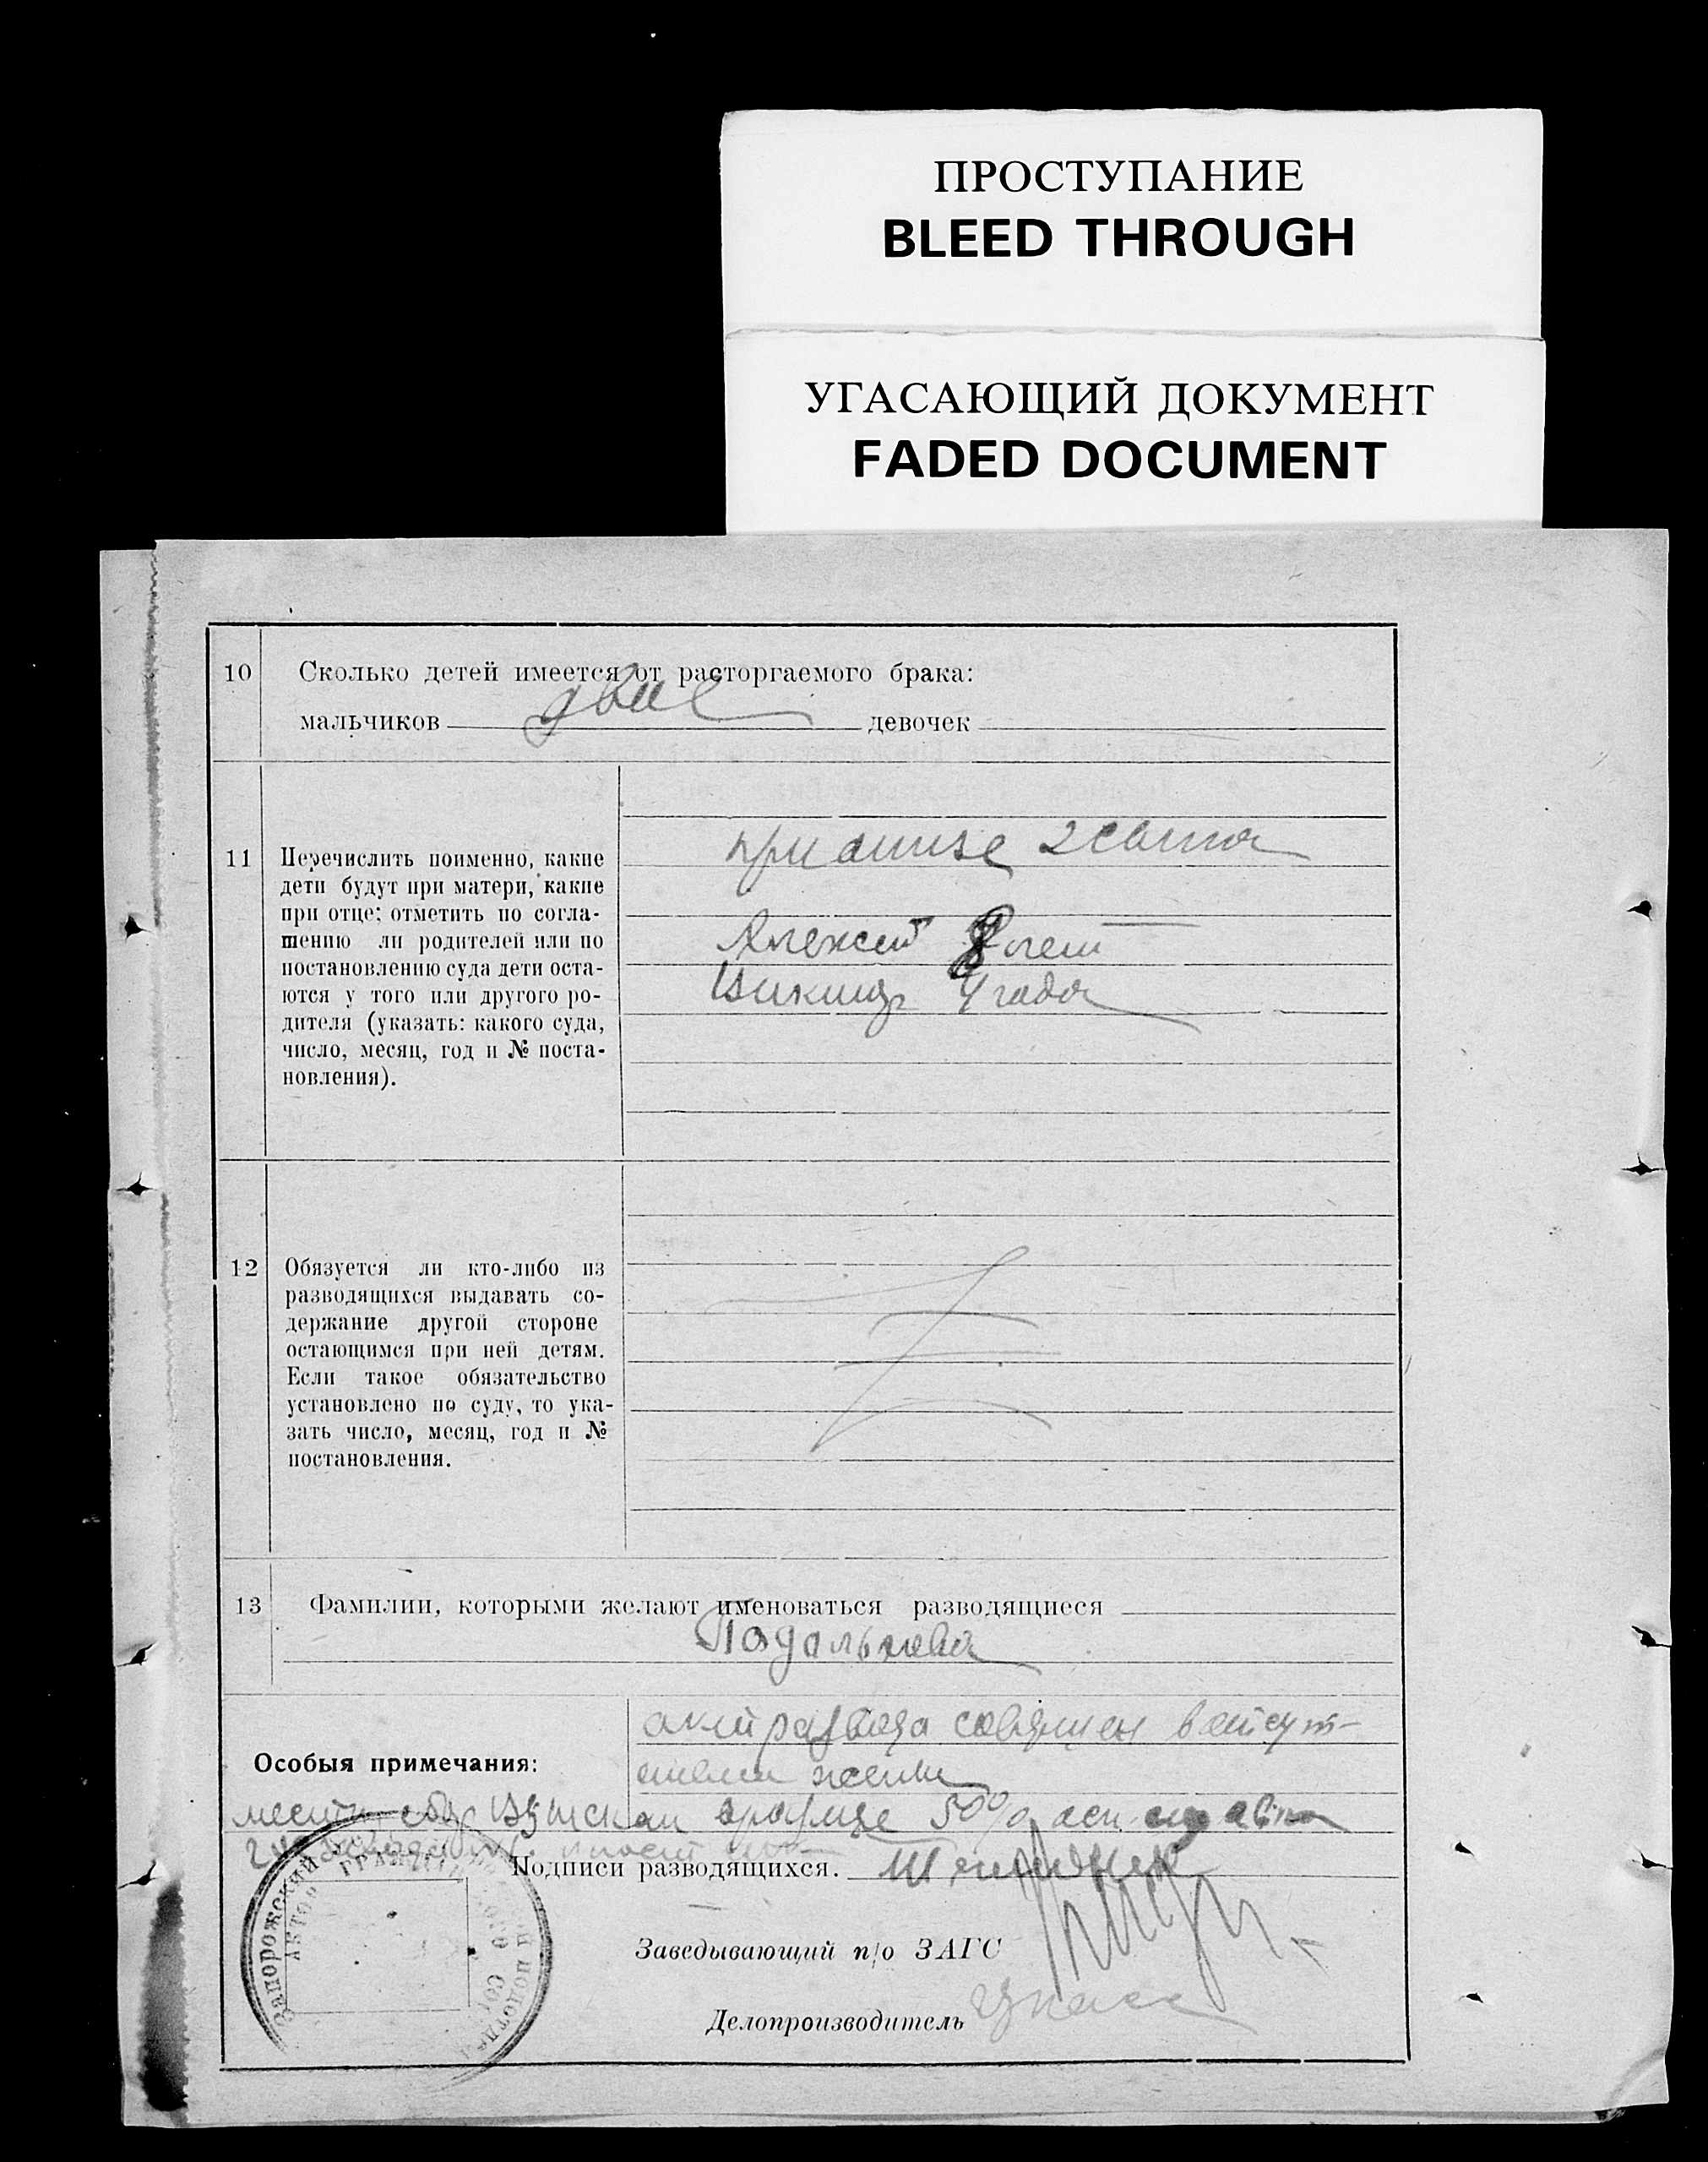 ПРОСТУПАНИЕ
BLEED THROUGH
УГАСАЮЩИЙ ДОКУМЕНТ
FADED DOCUMENT
10 Сколько детей имеется от расторгаемого брака:
мальчиков двое девочек
11 Перечислить поименно, какие
дети будут при матери, какие
при отце; отметить по согла-
шению ли родителей или по
постановлению суда дети оста-
ются у того или другого ро-
дителя (указать: какого суда,
число, месяц, год и № поста-
новления).
при отце
Алексей 8 лет
4 года
12 Обязуется ли кто-либо из
разводящихся выдавать со-
держание другой стороне
остающимся при ней детям.
Если такое обязательство
установлено по суду, то ука-
зать число, месяц, год и №
постановления.
13 Фамилии, которыми желают именоваться разводящиеся
Особыя примечания:
акт развода совершен в отсут-
ствии жены
50%
Подписи разводящихся.
Заведывающий п/о ЗАГС
Делопроизводитель
Запорожский